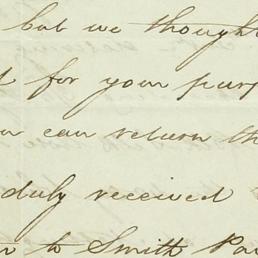 but we though
for your purp
can return th
duly received
to Smith Pa